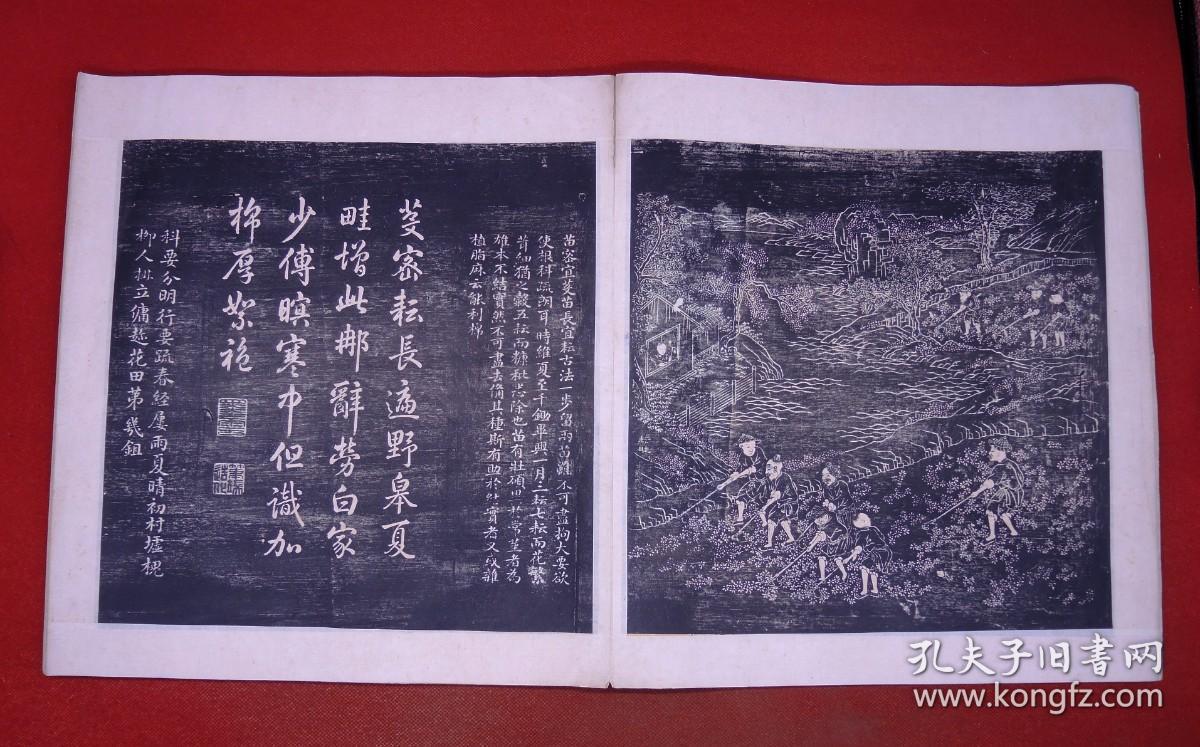 苗密宜芟苗長宜耘古法一步留兩苗雖不可盡拘大要欲
使根科疏朗耳時維夏至千鋤畢興一月三耘七耘而花繁
茸細猶之穀五耘而糠粃悉除也苗有壯碩異於常莖者為
雄本不結實然不可盡去備其種斯有助於結實者又或雜
植脂麻云能利棉
芟密耘長遍野皋夏
畦增此那辭勞白家
少傅暝寒中但識加
棉厚絮袍
科要分明行要疏春經屢雨夏晴初村墟槐
柳人排立傭趁花田第幾鉏
孔夫子旧書网
www.kongfz.com